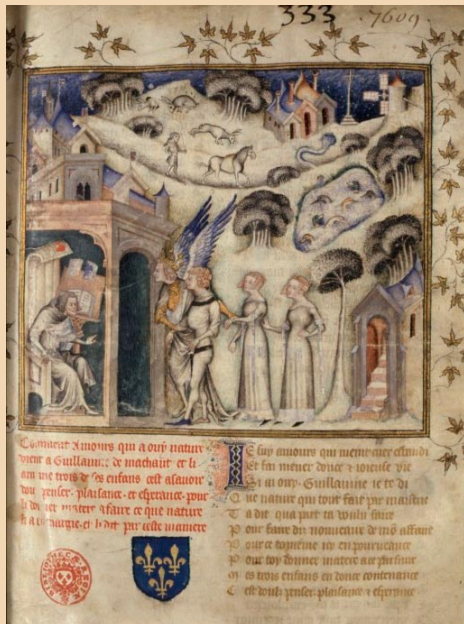 333 7609
Comment Amours qui a ouy nature
vient a Guillaume de machaut et li
ameine trois de ses enfans cest asavoir
doulz penser plaisance et esperance pour
li donner matere a faire ce que nature
li a enchargie et li dit par ceste maniere
Je suy amours qui meint cuer esbaudi
Et fai mener douce et ioieuse vie
Si ai ouy Guillaume ie te di
Que nature qui tout fait par maistrie
Ta dit qua part ta voulu faire
Pour faire dis nouveaus de mon affaire
Pour ce tameine ici en pourveance
Pour toy donner matere a ce parfaire
Mes trois enfans en douce contenance
Cest doulz penser plaisance et esperance